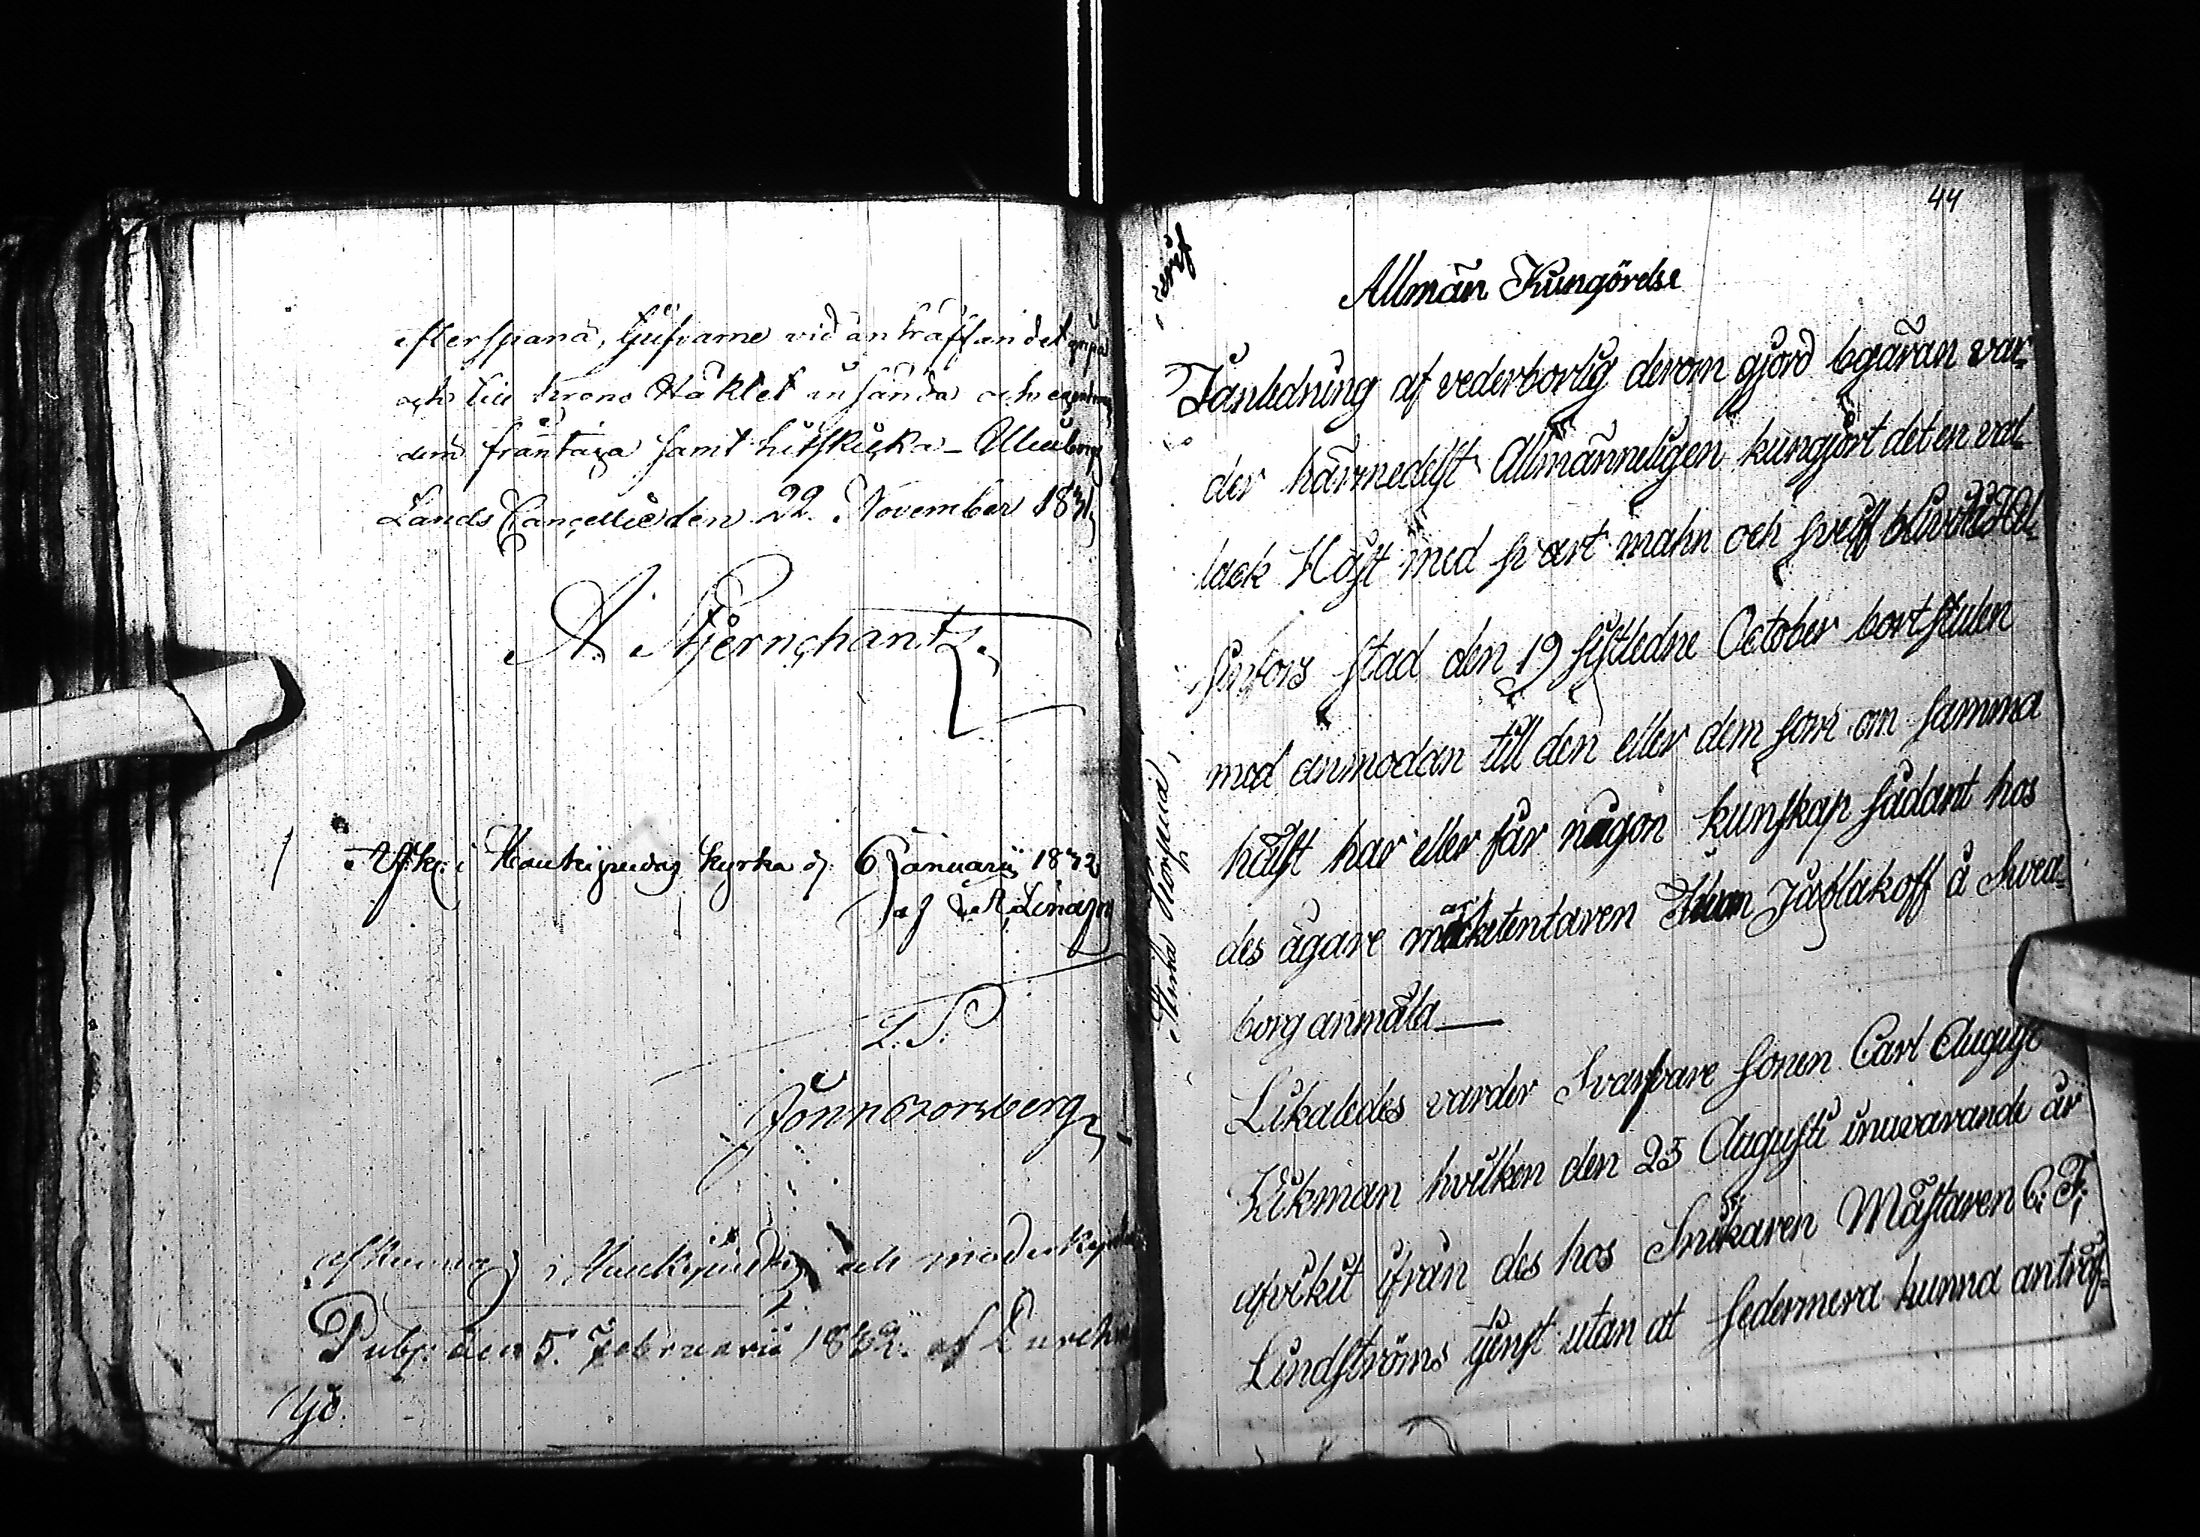 efterspana, tjufvarne vid anträffandet gripa
och till krono Häktet insända och egendomen
dem fråntaga samt hitskicka – Uleåborg
Lands Cancellie den 22 November 1831
A. Stjernschantz
Afk. i Haukipudas kyrka d. 6 Januarii 1832
af
L. S.
Joh Snonsberg
i Haukipudas moderkyrka
Publ. den 5. Februarii 1832. af
44
Allmän Kungörelse
I anledning af vederborlig derom gjord begäran var-
der härmedelst Allmänneligen kungjort det en val-
lack Häst med svart mahn och svelf blivit i Hel-
sinfors stad den 19 sistledne October bortstulen
med anmodan till den eller dem som om samma
häst har eller får någon kunskap sådant hos
des ägare marketentaren Iwan Jablakoff å Svea-
borg anmäla —
Likaledes varder Svarfvare sonen Carl August
Zikman hvilken den 23 Augusti inuvarande år
afvikit ifrån des hos Snikaren Mästaren C. F.
Lindströms tjenst utan at sedermera kunna anträf-